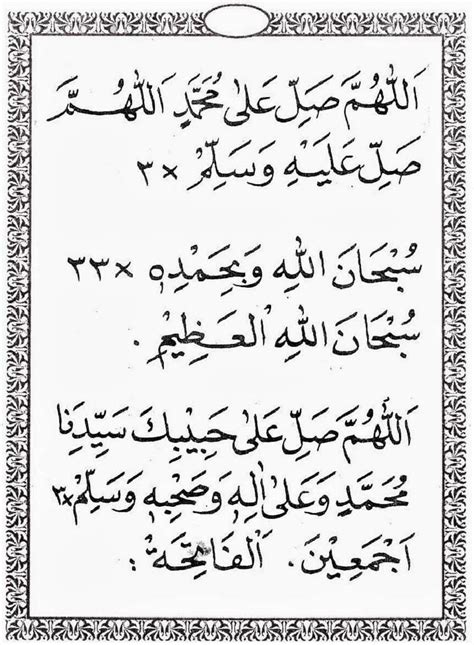 اَللّٰهُمَّ صَلِّ عَلٰى مُحَمَّدٍ اَللّٰهُمَّ
صَلِّ عَلَيْهِ وَسَلِّمْ ×٣
سُبْحَانَ اللهِ وَبِحَمْدِهِ ×٣٣
سُبْحَانَ اللهِ الْعَظِيْمِ .
اَللّٰهُمَّ صَلِّ عَلٰى حَبِيْبِكَ سَيِّدِنَا
مُحَمَّدٍ وَعَلٰى اٰلِهٖ وَصَحْبِهٖ وَسَلِّمْ ×٣
اَجْمَعِيْنَ . اَلْفَاتِحَةْ :